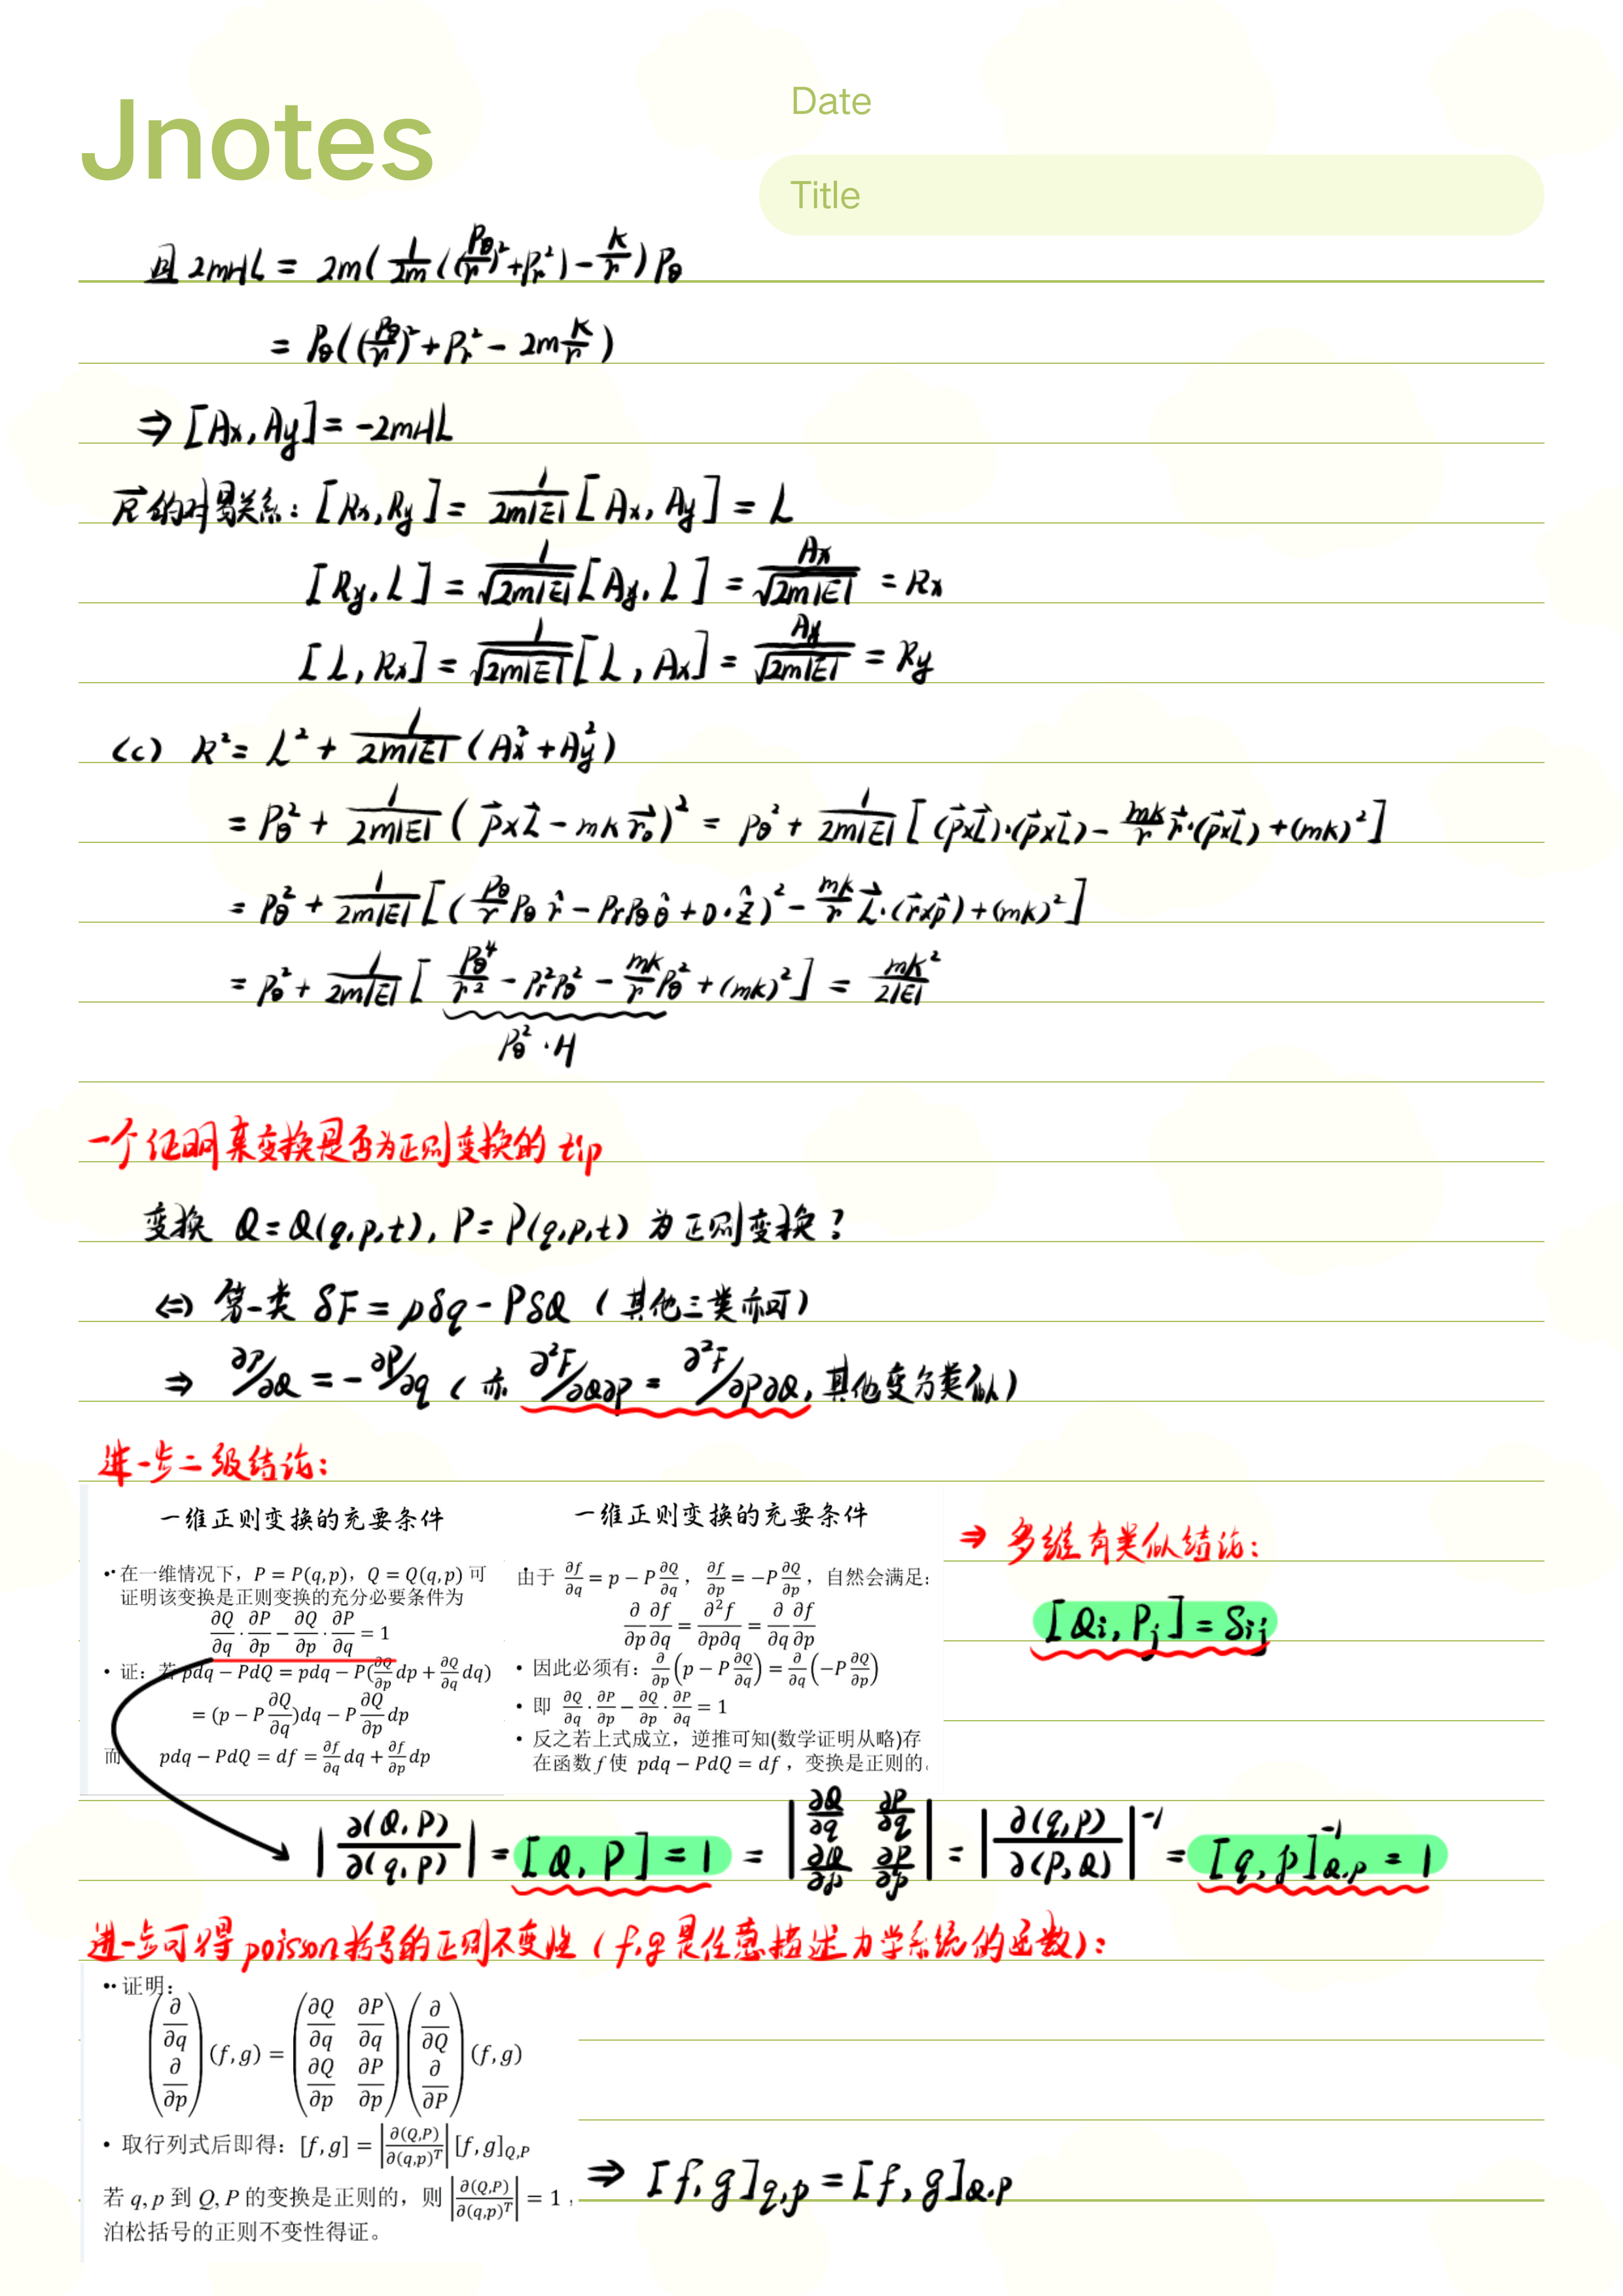 Jnotes
Date
Title
且 2mHL = 2m( 1/2m ((Pθ/r)² + Pr²) - k/r ) Pθ
= Pθ((Pθ/r)² + Pr² - 2m k/r )
⇒ [Ax, Ay] = -2mHL
R⃗ 的对易关系: [Rx, Ry] = 1/(2m|E|) [Ax, Ay] = L
[Ry, L] = 1/√(2m|E|) [Ay, L] = Ax/√(2m|E|) = Rx
[L, Rx] = 1/√(2m|E|) [L, Ax] = Ay/√(2m|E|) = Ry
(c) R² = L² + 1/(2m|E|) (Ax² + Ay²)
= Pθ² + 1/(2m|E|) (p⃗×L⃗ - mk r⃗₀)² = Pθ² + 1/(2m|E|) [(p⃗×L⃗)·(p⃗×L⃗) - mk/r r⃗·(p⃗×L⃗) + (mk)²]
= Pθ² + 1/(2m|E|) [(Pθ/r Pθ r̂ - PrPθ θ̂ + 0·ẑ)² - mk/r L⃗·(r⃗×p⃗) + (mk)²]
= Pθ² + 1/(2m|E|) [Pθ⁴/r² - Pr²Pθ² - mk/r Pθ² + (mk)²] = mk²/2|E|
Pθ²·H
一个证明某变换是否为正则变换的 tip
变换 Q = Q(q,p,t), P = P(q,p,t) 为正则变换?
⇔ 第一类 δF = pδq - PδQ (其他三类亦可)
⇒ ∂P/∂Q = -∂P/∂q (亦 ∂²F/∂Q∂p = ∂²F/∂p∂Q, 其他变分类似)
进一步二级结论:
一维正则变换的充要条件
• 在一维情况下，P = P(q,p)，Q = Q(q,p) 可
证明该变换是正则变换的充分必要条件为
∂Q/∂q · ∂P/∂p − ∂Q/∂p · ∂P/∂q = 1
• 证：若 pdq − PdQ = pdq − P(∂Q/∂p dp + ∂Q/∂q dq)
= (p − P ∂Q/∂q)dq − P ∂Q/∂p dp
而 pdq − PdQ = df = ∂f/∂q dq + ∂f/∂p dp
一维正则变换的充要条件
由于 ∂f/∂q = p − P ∂Q/∂q，∂f/∂p = −P ∂Q/∂p，自然会满足:
∂/∂p ∂f/∂q = ∂²f/∂p∂q = ∂/∂q ∂f/∂p
• 因此必须有：∂/∂p (p − P ∂Q/∂q) = ∂/∂q (−P ∂Q/∂p)
• 即 ∂Q/∂q · ∂P/∂p − ∂Q/∂p · ∂P/∂q = 1
• 反之若上式成立，逆推可知(数学证明从略)存
在函数 f 使 pdq − PdQ = df，变换是正则的。
⇒ 多维有类似结论:
[Qi, Pj] = δij
|∂(Q,P)/∂(q,p)| = [Q, P] = 1 = |∂Q/∂q ∂P/∂q ∂Q/∂p ∂P/∂p| = |∂(q,p)/∂(P,Q)|⁻¹ = [q, p]⁻¹Q.P = 1
进一步可得 poisson 括号的正则不变性 (f,g 是任意描述力学系统的函数):
• 证明：
(∂/∂q ∂/∂p) (f,g) = (∂Q/∂q ∂P/∂q ∂Q/∂p ∂P/∂p) (∂/∂Q ∂/∂P) (f,g)
• 取行列式后即得：[f,g] = |∂(Q,P)/∂(q,p)ᵀ| [f,g]Q,P
若 q,p 到 Q,P 的变换是正则的，则 |∂(Q,P)/∂(q,p)ᵀ| = 1，
泊松括号的正则不变性得证。
⇒ [f, g]q,p = [f, g]Q.P